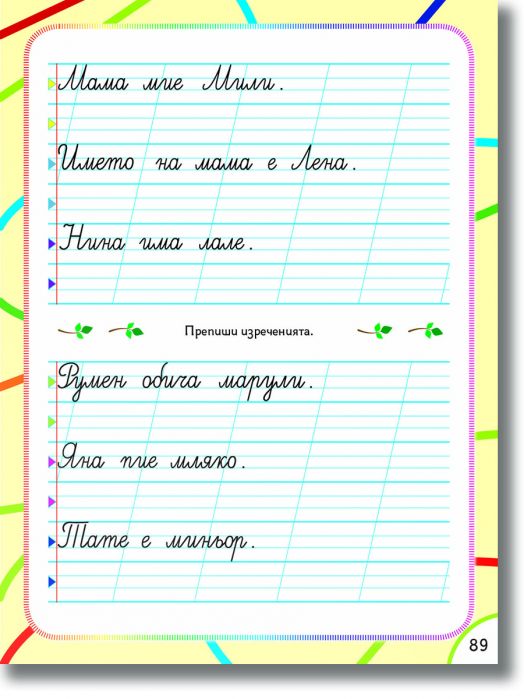 Мама мие Мили.
Името на мама е Лена.
Нина има лале.
Препиши изреченията.
Румен обича марули.
Яна пие мляко.
Тате е миньор.
89